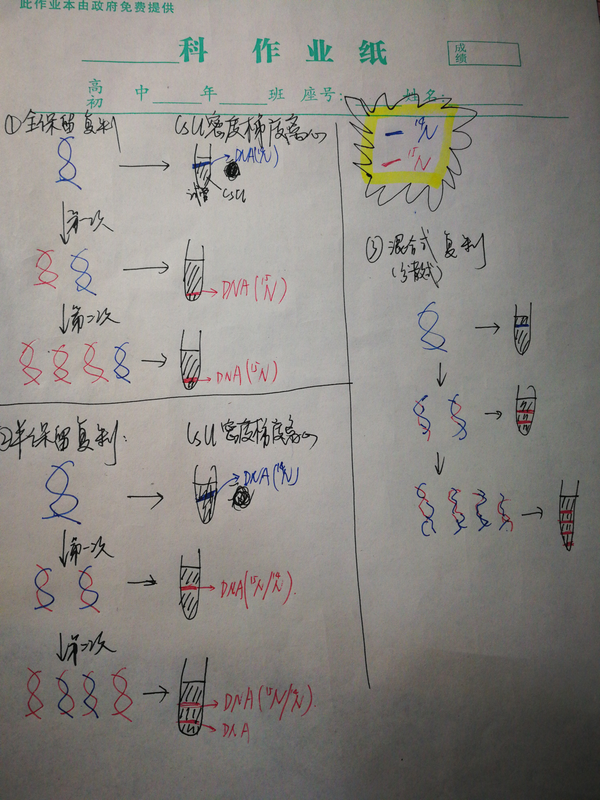 此作业本由政府免费提供
科 作 业 纸
成绩
高初 中 年 班 座号: 姓名:
— ¹⁴N
— ¹⁵N
①全保留复制 CsCl密度梯度离心
DNA(¹⁴N)
试管 CsCl
第一次
DNA(¹⁵N)
第二次
DNA(¹⁵N)
②半保留复制: CsCl密度梯度离心
DNA(¹⁴N)
第一次
DNA(¹⁵N/¹⁴N).
第二次
DNA(¹⁵N/¹⁴N).
DNA
③混合式复制
(分散式)